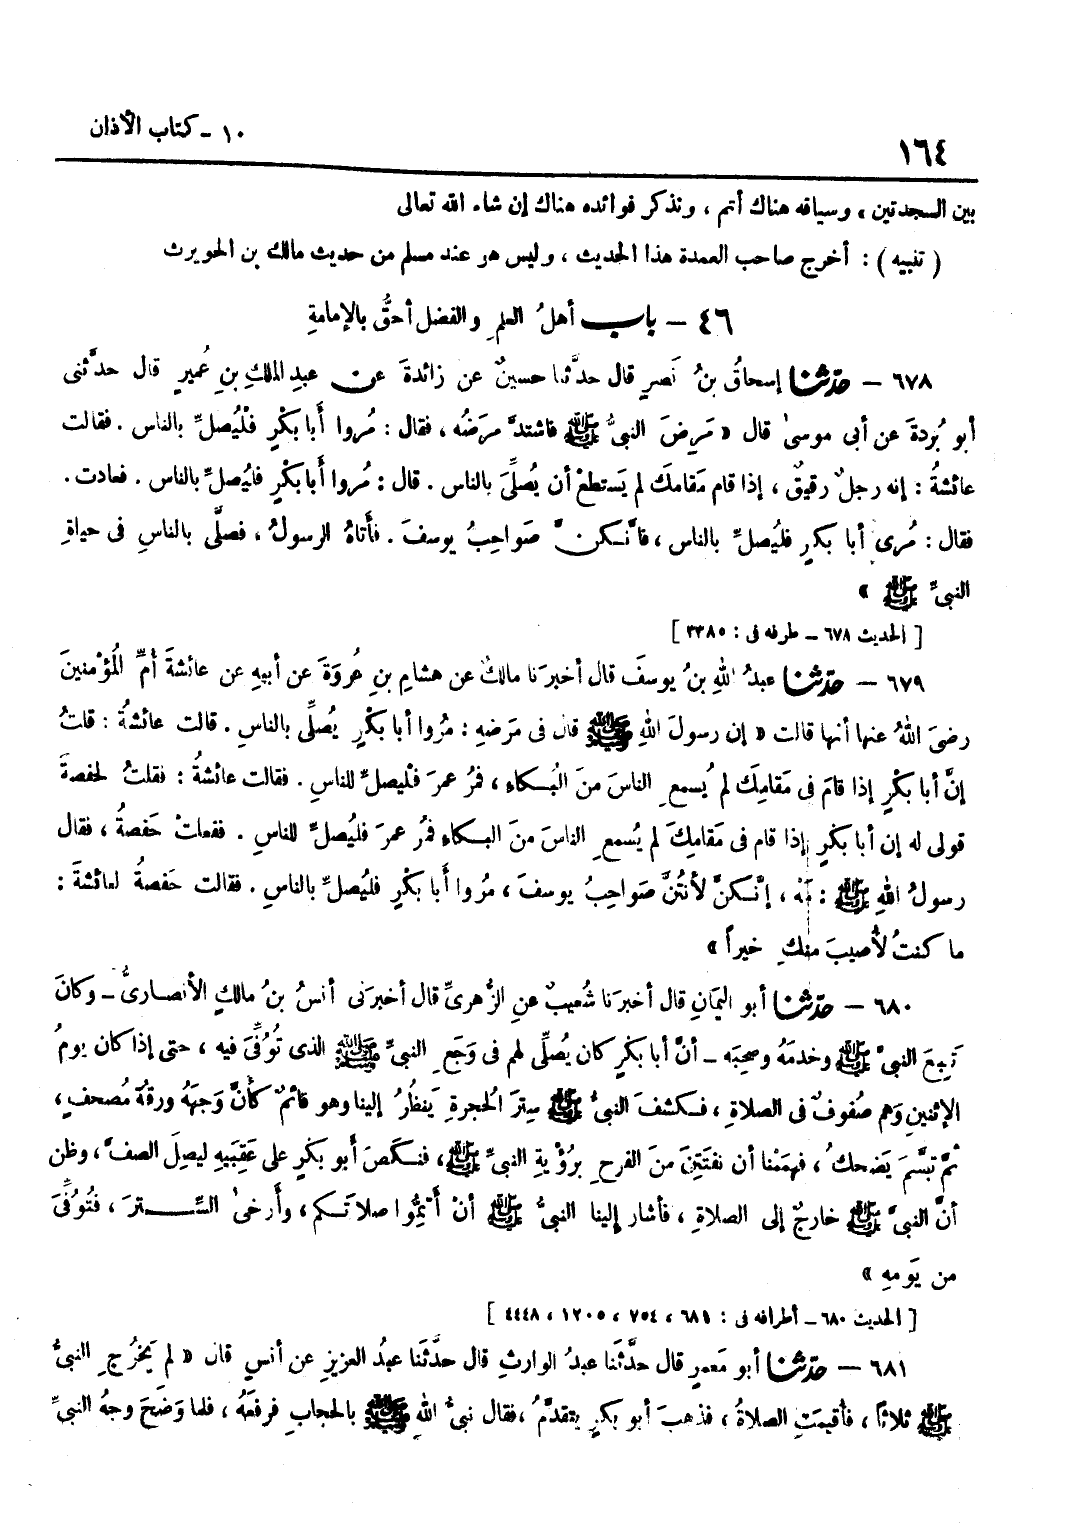 ١٠ - كتاب الأذان
١٦٤
بين السجدتين ، وسياقه هناك أتم ، ونذكر فوائده هناك إن شاء الله تعالى
( تنبيه ) : أخرج صاحب العمدة هذا الحديث ، وليس هو عند مسلم من حديث مالك بن الحويرث
٤٦ - باب أهلُ العلمِ والفضل أحقُّ بالإمامةِ
٦٧٨ - حدّثنا إسحاقُ بنُ نَصرٍ قال حدَّثنا حسينٌ عن زائدةَ عن عبدِ الملكِ بنِ عُميرٍ قال حدَّثنى
أبو بُردةَ عن أبى موسىٰ قال « مَرِضَ النبىُّ ﷺ فاشتدَّ مرَضُه ، فقال : مُروا أبا بكْرٍ فلْيُصلِّ بالناس . فقالت
عائشةُ : إنه رجلٌ رقيقٌ ، إذا قام مَقامَك لم يَستطعْ أن يُصلِّىَ بالناس . قال : مُروا أبا بكْرٍ فليُصلِّ بالناس . فعادت .
فقال : مُرى أبا بكرٍ فليُصلِّ بالناس ، فإنَّكنَّ صَواحِبُ يوسفَ . فأتاهُ الرسولُ ، فصلَّى بالناسِ فى حياةِ
النبىِّ ﷺ »
[ الحديث ٦٧٨ - طرفه فى : ٣٣٨٥ ]
٦٧٩ - حدّثنا عبدُ اللهِ بنُ يوسفَ قال أخبرَنا مالكٌ عن هشامِ بنِ عُروَةَ عن أبيهِ عن عائشةَ أُمِّ المُؤْمنينَ
رضىَ اللهُ عنها أنها قالت « إن رسولَ اللهِ ﷺ قال فى مَرضهِ : مُروا أبا بكْرٍ يُصلِّى بالناسِ . قالت عائشةُ : قلتُ
إنَّ أبا بكْرٍ إذا قامَ فى مَقامِكَ لم يُسمعِ الناسَ منَ البُكاءِ ، فمُرْ عمرَ فلْيصلِّ للناسِ . فقالت عائشةُ : فقلتُ لحفصةَ
قولى له إن أبا بكْرٍ إذا قام فى مَقامِكَ لم يُسمعِ الناسَ منَ البكاءِ فمُرْ عمرَ فليُصلِّ للناسِ . ففعلتْ حَفصةُ ، فقال
رسولُ اللهِ ﷺ : مَهْ ، إنَّكنَّ لأنتُنَّ صَواحِبُ يوسفَ ، مُروا أبا بكْرٍ فليُصلِّ بالناسِ . فقالت حَفصةُ لعائشةَ :
ما كنتُ لأُصيبَ منكِ خيراً »
٦٨٠ - حدّثنا أبو اليمَانِ قال أخبرَنا شُعيبٌ عنِ الزُّهرىِّ قال أخبرَنى أنسُ بنُ مالكٍ الأنصارىُّ - وكانَ
تَبِعَ النبىَّ ﷺ وخدمَهُ وصحِبَه - أنَّ أبا بكْرٍ كان يُصلِّى لهم فى وَجَعِ النبىِّ ﷺ الذى تُوُفِّىَ فيه ، حتى إذا كان يومُ
الإثنينِ وَهم صُفوفٌ فى الصلاةِ ، فكشفَ النبىُّ ﷺ سِترَ الحُجرةِ يَنظُرُ إلينا وهو قائمٌ كأنَّ وَجهَهُ ورقةُ مُصحفٍ ،
ثمَّ تبسَّمَ يَضحكُ ، فهمَمْنا أن نفتَتِنَ منَ الفرحِ برُؤْيةِ النبىِّ ﷺ ، فنكَصَ أبو بكرٍ على عَقِبَيهِ ليصِلَ الصفَّ ، وظن
أنَّ النبىَّ ﷺ خارجٌ إلى الصلاةِ ، فأشار إلينا النبىُّ ﷺ أنْ أتِمُّوا صلاتَكم ، وأرخىٰ السِّترَ ، فتُوُفِّىَ
من يَومهِ »
[ الحديث ٦٨٠ - أطرافه فى : ٦٨١ ، ٧٥٤ ، ١٢٠٥ ، ٤٤٤٨ ]
٦٨١ - حدّثنا أبو مَعمرٍ قال حدَّثَنا عبدُ الوارثِ قال حدَّثَنا عبدُ العزيزِ عن أنسٍ قال « لم يَخرُجِ النبىُّ
ﷺ ثلاثاً ، فأُقيمَتِ الصلاةُ ، فذهبَ أبو بكرٍ يتقدَّمُ ، فقال نبىُّ اللهِ ﷺ بالحجابِ فرفعَهُ ، فلما وَضَحَ وجهُ النبىِّ